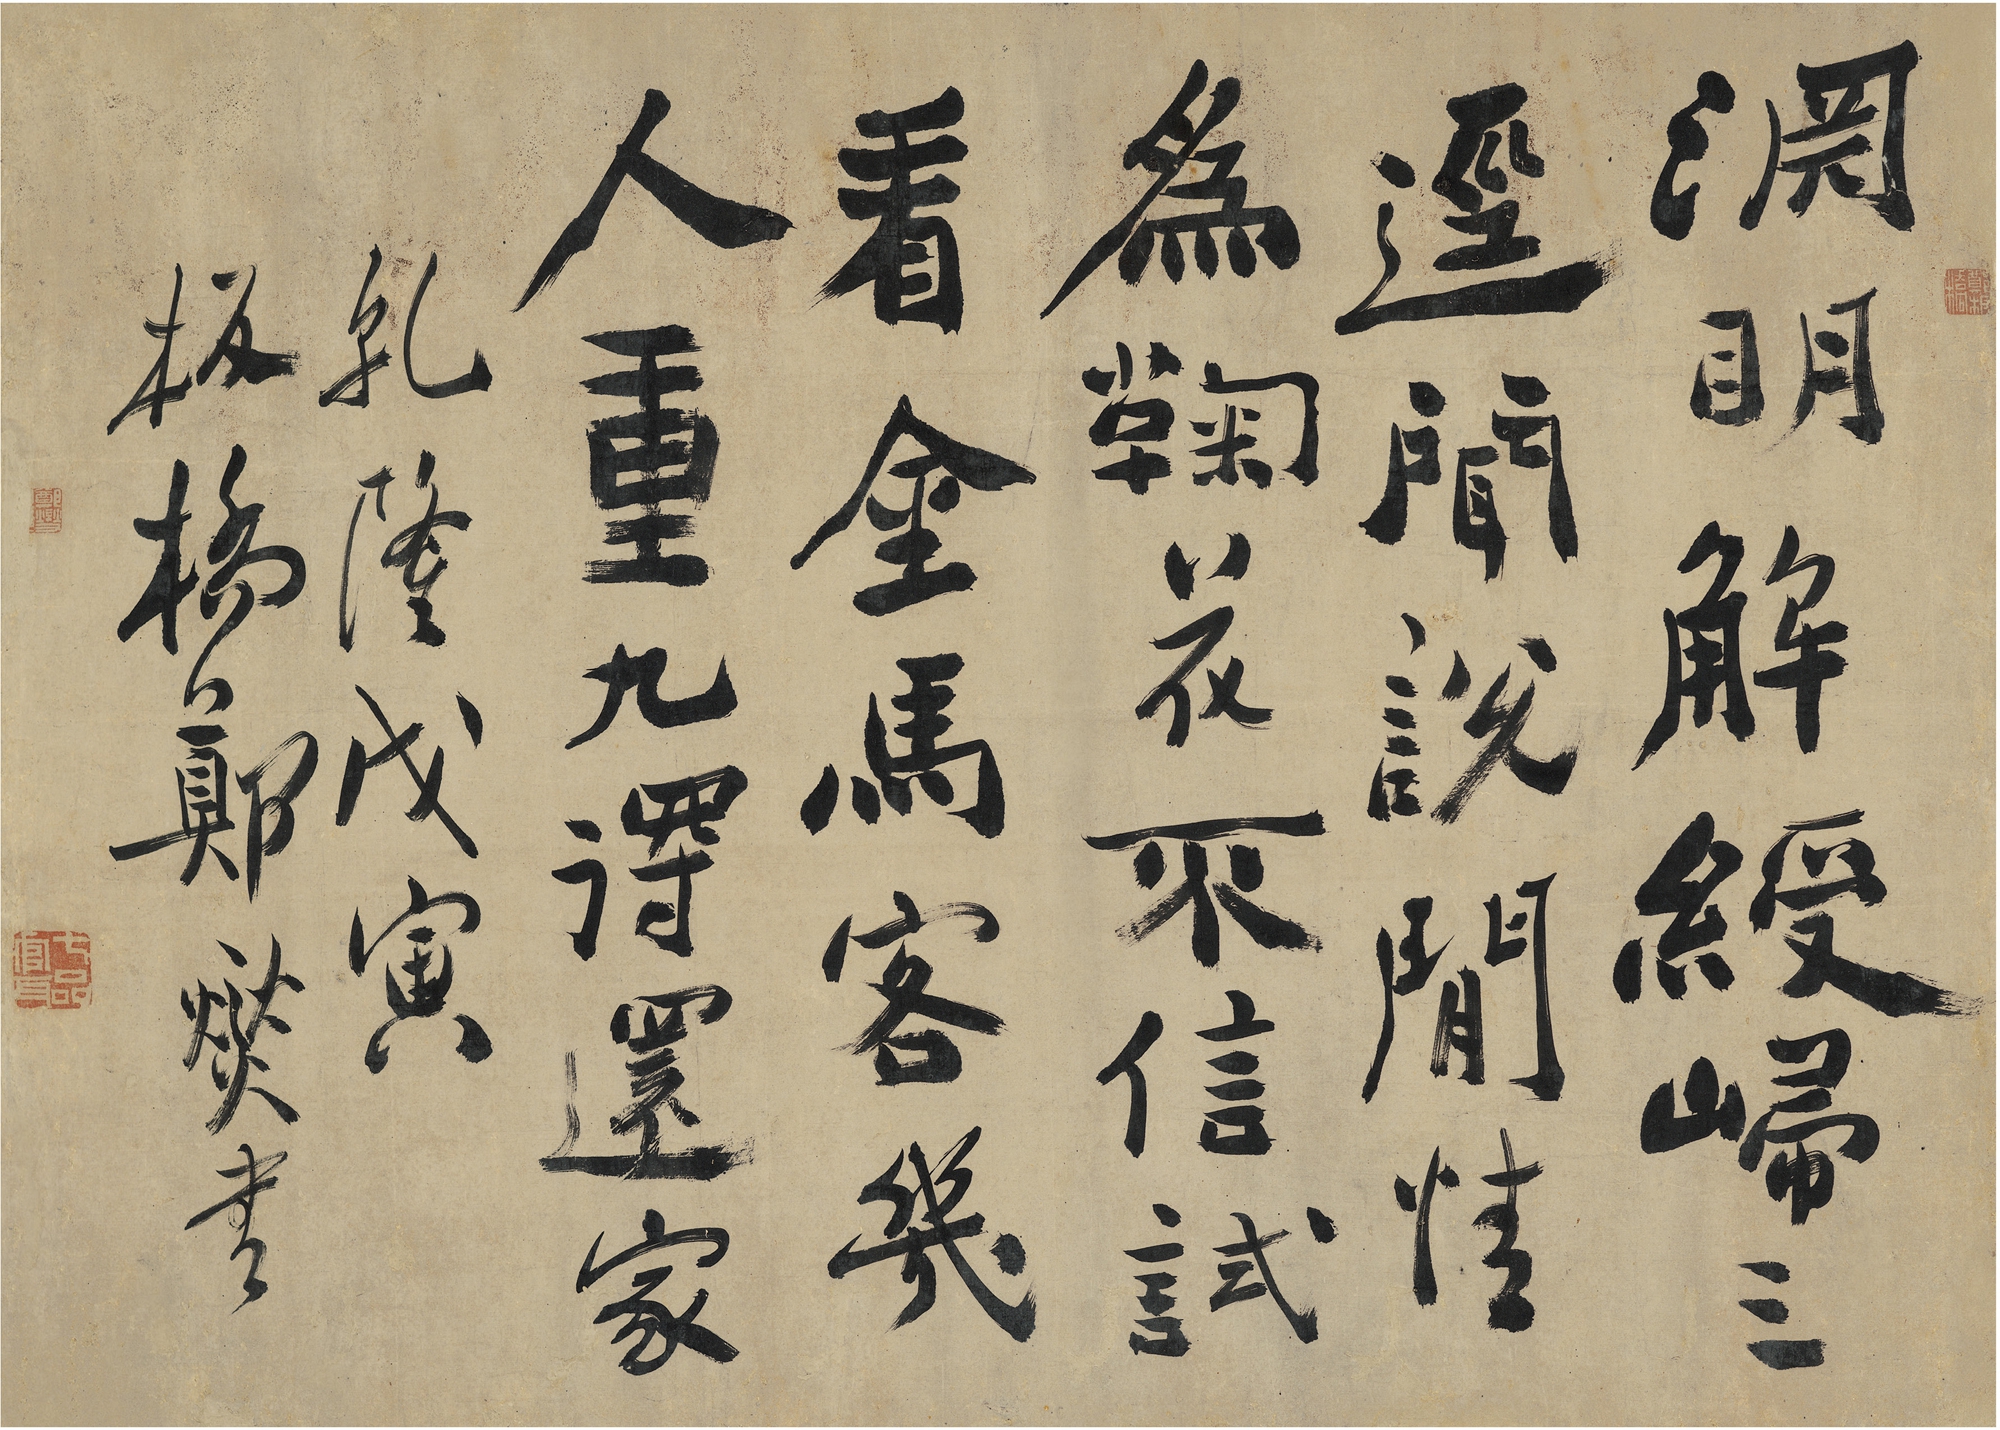 淵明解綬歸三
逕聞說閒情
為鞠花不信試
看金馬客幾
人重九得還家
乾隆戊寅
板橋鄭燮書
鄭燮
七品官耳